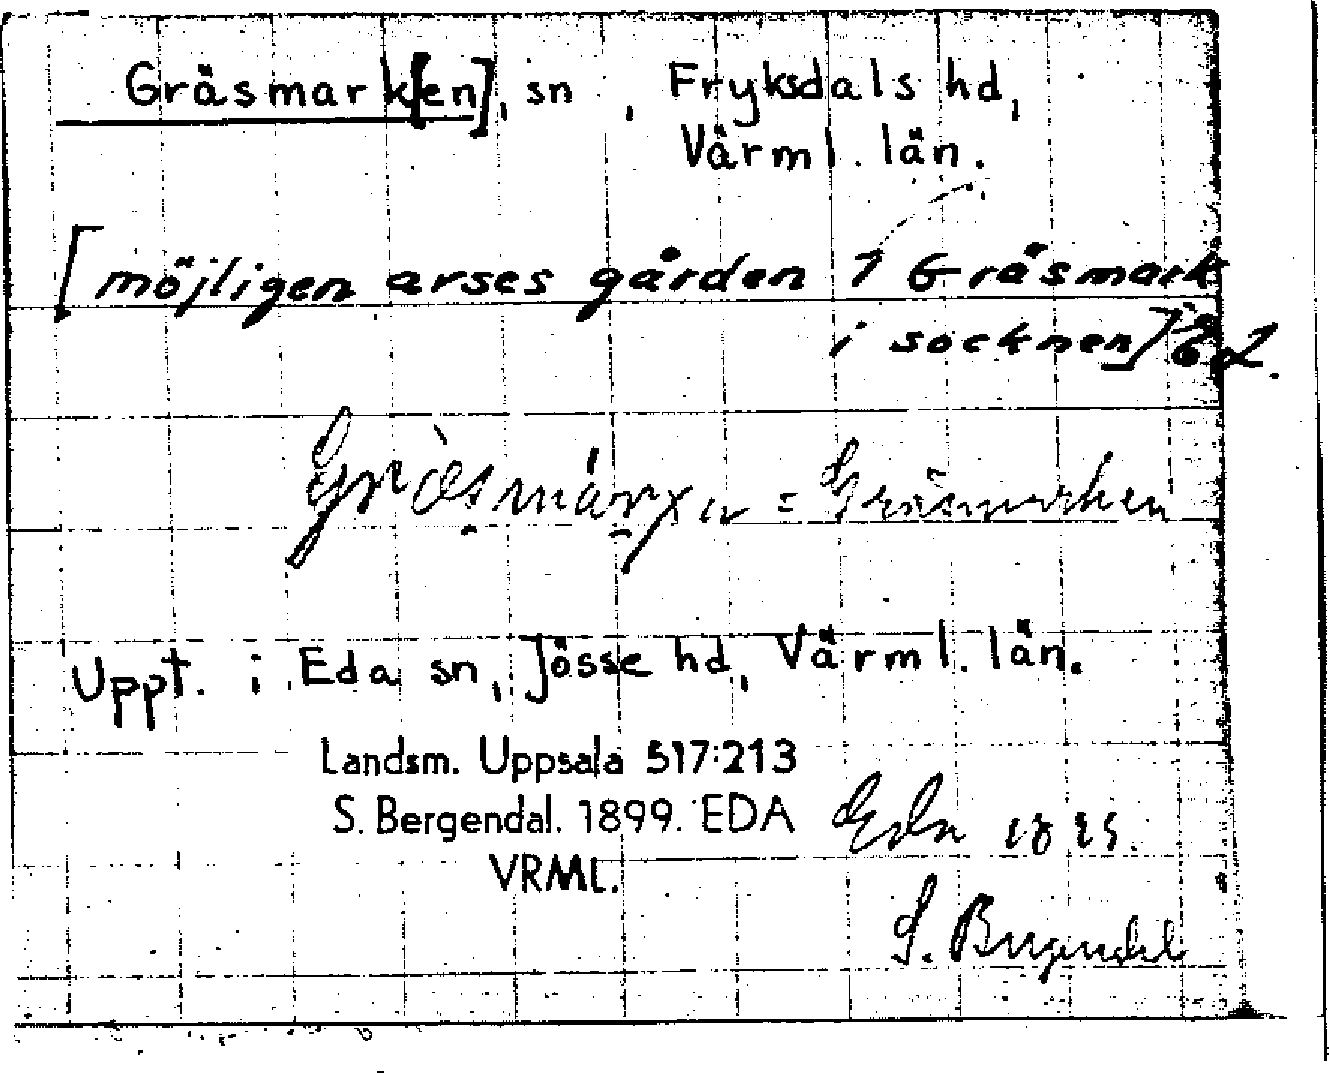 Gräsmark[en], sn , Fryksdals hd,
Värml. län.
[möjligen arses gården 1 Gräsmark
i socknen]
= Gräsmarken
Uppt. i Eda sn, Jösse hd, Värml. län.
Landsm. Uppsala 517:213
S. Bergendal. 1899. EDA
VRML.
Eda
S. Bergendal